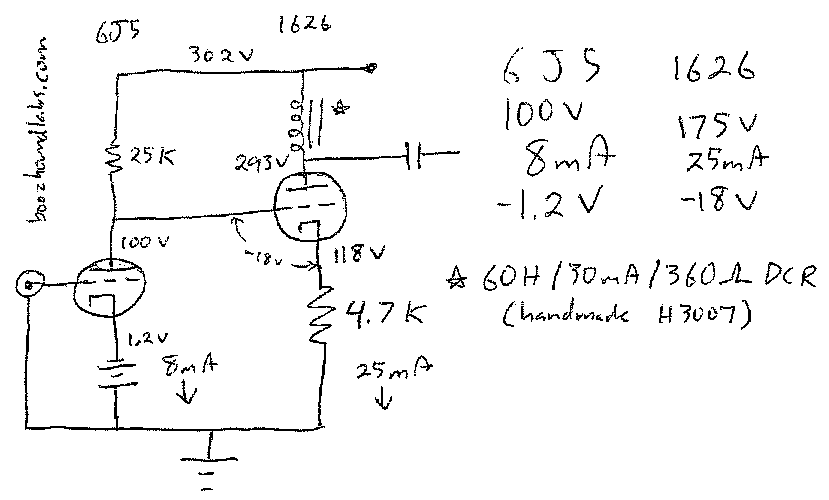 6J5
1626
302V
boozhoundlabs.com
25K
293V
100V
-18V
118V
1.2V
8mA
4.7K
25mA
6J5 1626
100V 175V
8mA 25mA
-1.2V -18V
☆ 60H/30mA/360Ω DCR
(handmade H3007)